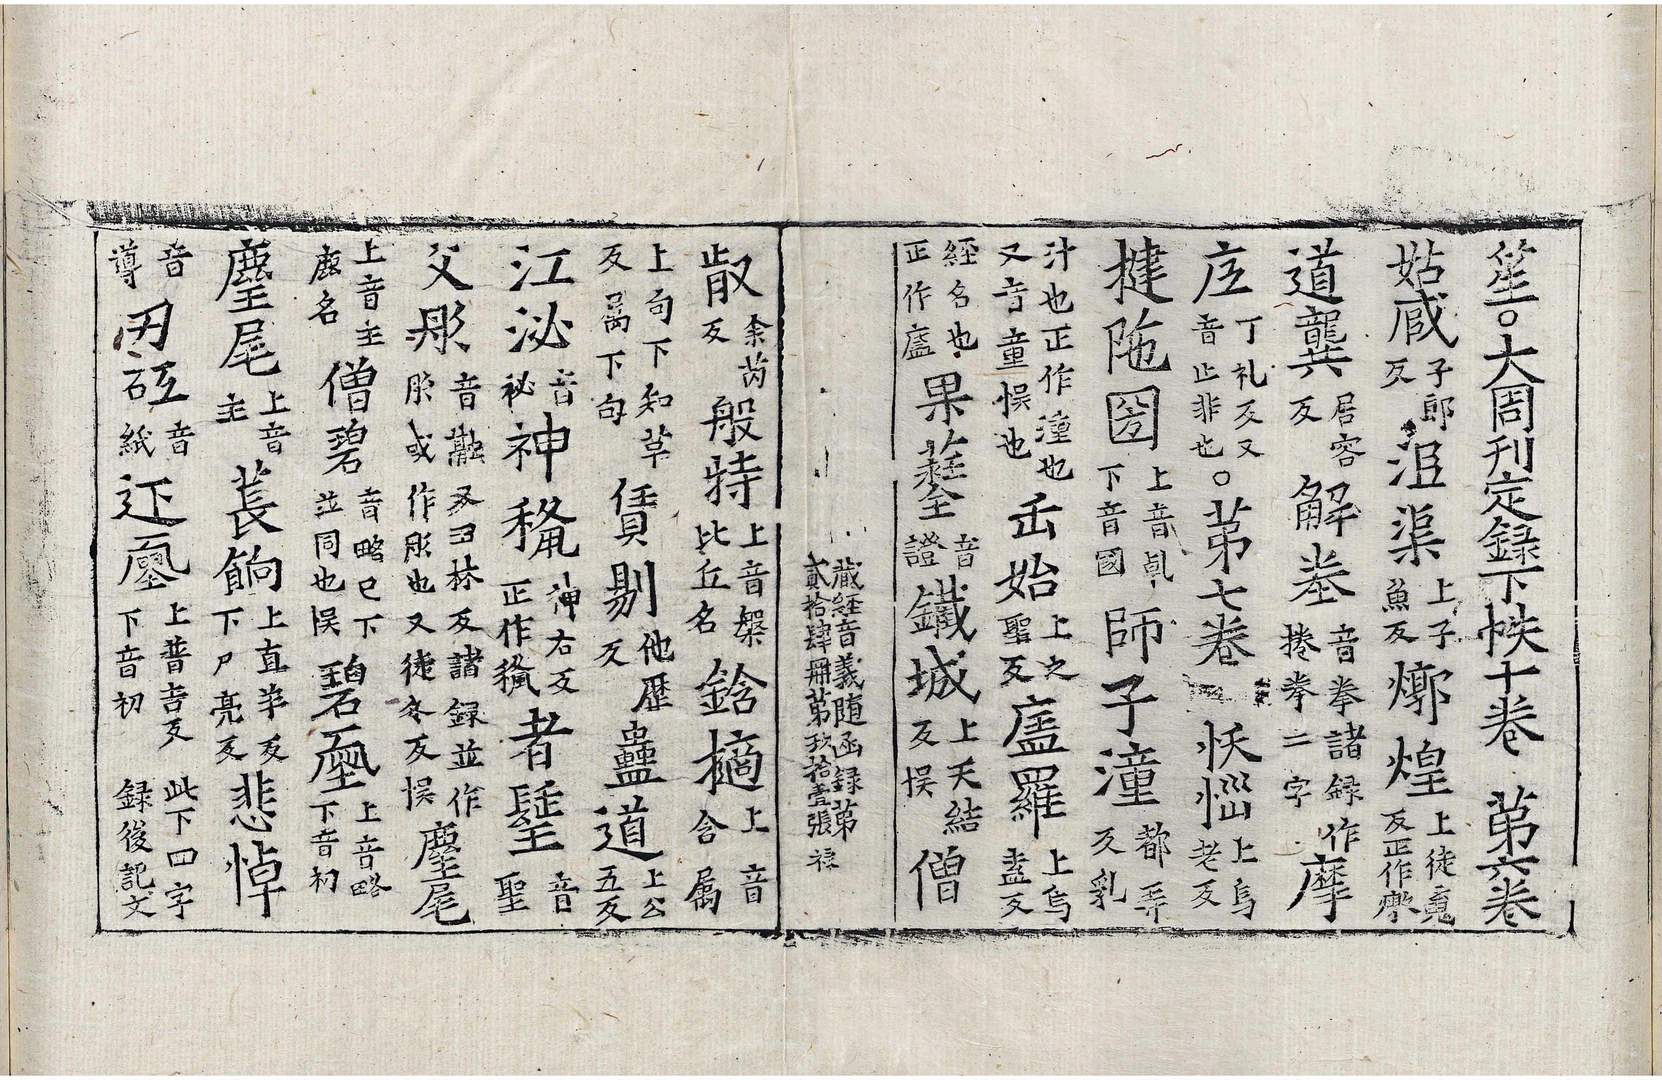 笙○大周刊定録下帙十卷 第六卷
姑臧子郎反沮渠上子魚反燉煌上徒䰟反正作燉
道龔居容反解桊音拳諸録作捲拳二字摩
㡳丁礼反又音止非也○第七卷 㤇惱上烏老反
揵陁圀上音乹下音國師子潼都弄反乳
汁也正作湩也又音童悮也𦈢始上之聖反廬羅上烏盍反
經名也正作廅果䥫音證鐵城上天結反悮僧
藏經音義随函録第貳拾肆冊第玖拾壹張 禄
㪚余芮反般特上音槃比丘名鋡摛上音含属
上句下知草反属下句賃剔他歷反蠱道上公五反
江泌音祕神䅿神右反正作䅿者髽音聖
父彤音融又丑林反諸録並作肜或作彤也又徒冬反悮麈尾
上音主鹿名僧䂮音略已下並同也悮䂮𡔈上音略下音初
麈尾上音主萇餉上直羊反下尸亮反悲悼
音導刄砥音紙迋𡔈上普吉反下音初此下四字録後記文